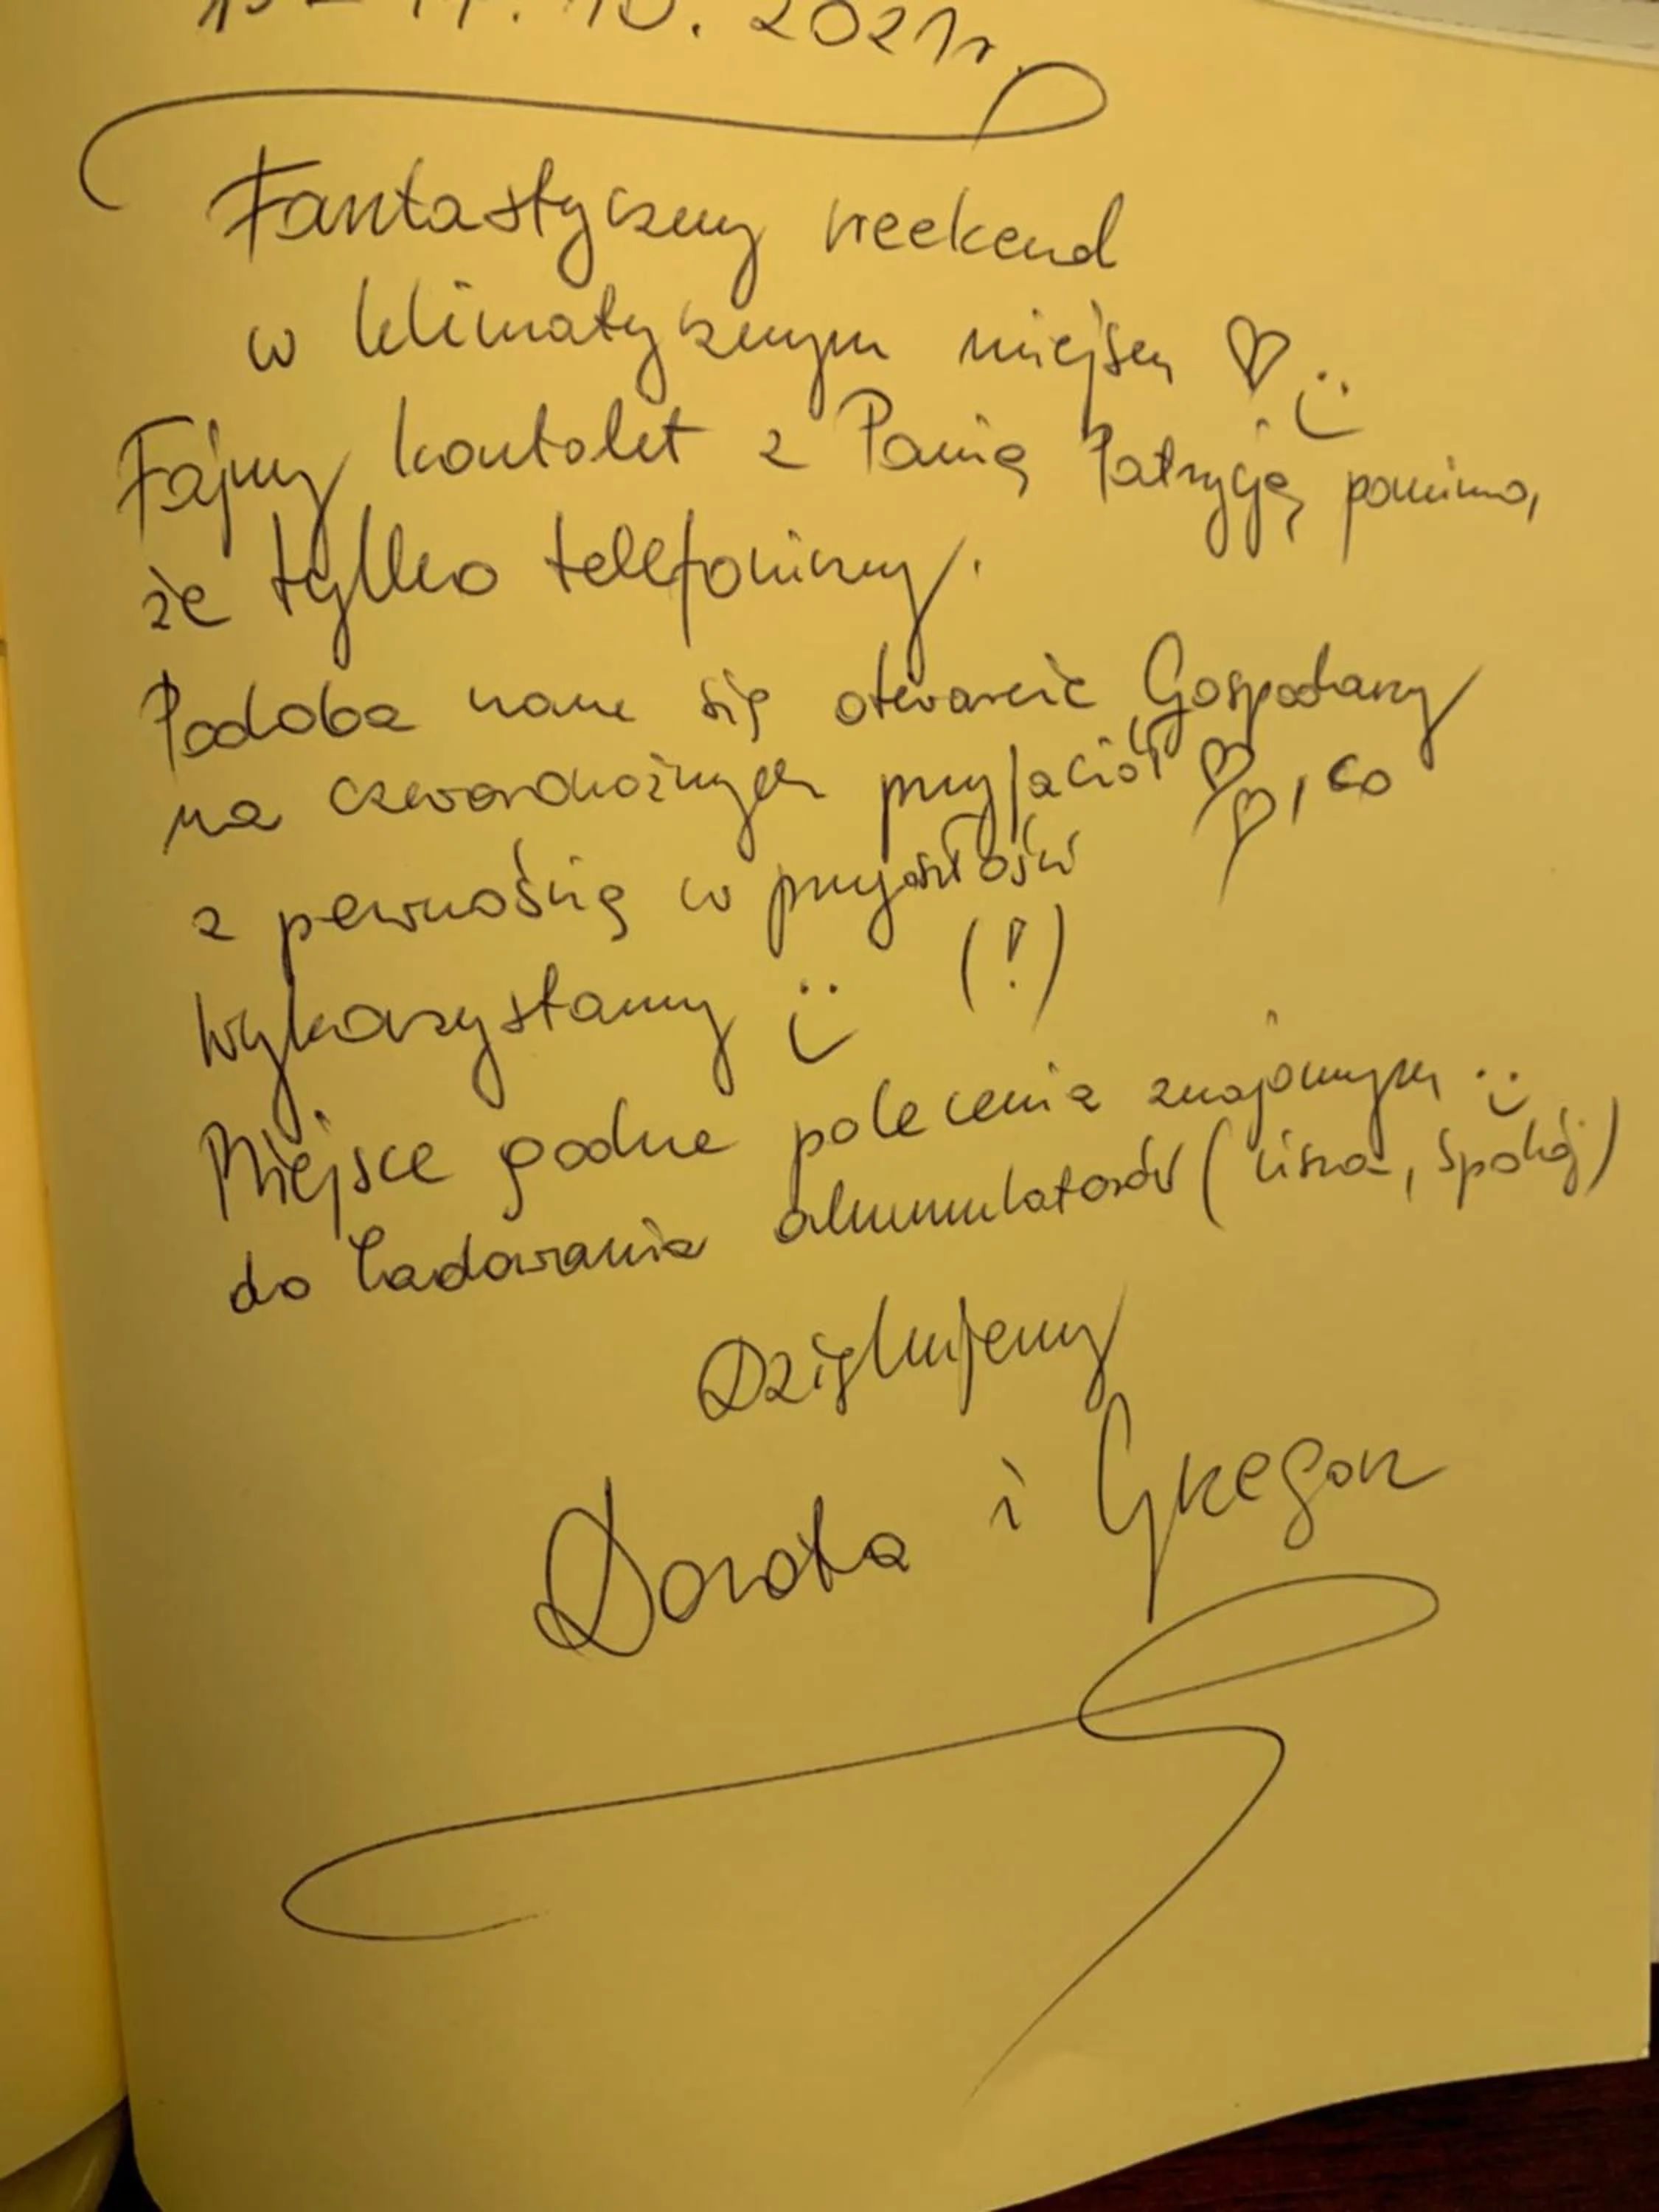 15-17.10.2021r.
Fantastyczny weekend
w klimatycznym miejscu ♡ :)
Fajny kontakt z Panią Patrycją, pomimo,
że tylko telefoniczny.
Podoba nam się otwarcie Gospodarzy
na czworonożnych przyjaciół ♡♡, co
z pewnością w przyszłości
wykorzystamy :) (!)
Miejsce godne polecenia znajomym :)
do ładowania akumulatorów (cisza, spokój)
Dziękujemy
Dorota i Grzegorz